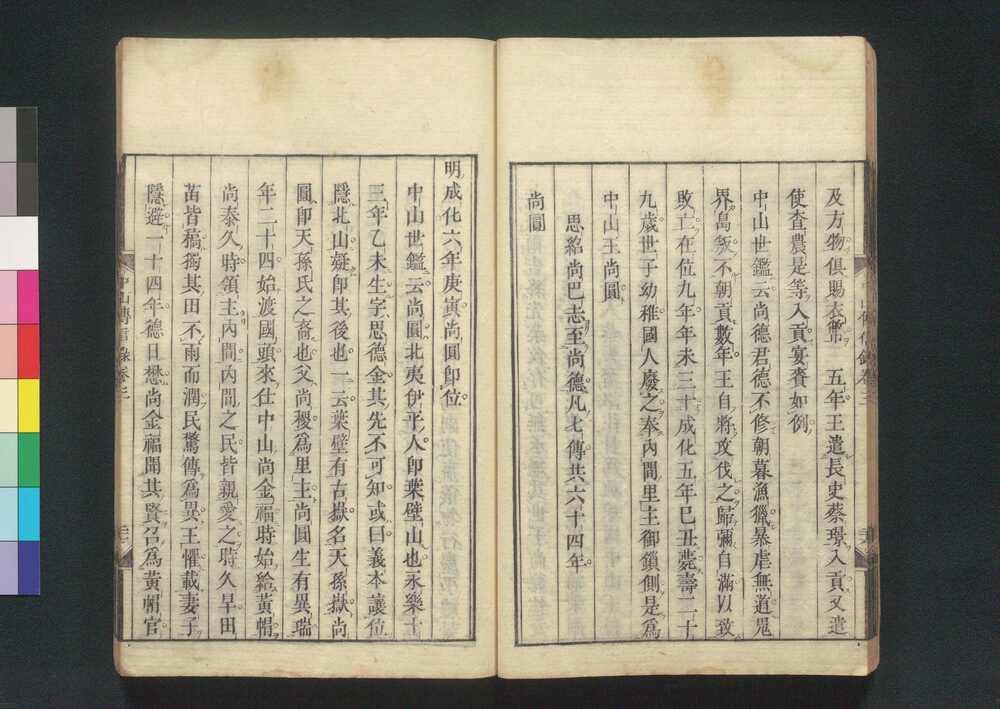 及方物俱賜衣幣　五年王遣長史蔡璟入貢又遣
使查農是等入貢宴賚如例
中山世鑑云尚德君德不修朝暮漁獵暴虐無道鬼
界島叛不朝貢數年王自將攻伐之歸彌自滿以致
敗亡在位九年年未三十成化五年己丑薨壽二十
九歲世子幼稚國人廢之奉內間里主御鎖側是為
中山王尚圓
思紹尚巴志至尚德凡七傳共六十四年
尚圓
明成化六年庚寅尚圓即位
中山世鑑云尚圓北夷伊平人即葉壁山也永樂十
三年乙未生字思德金其先不可知或曰義本讓位
隱北山疑即其後也一云葉壁有古嶽名天孫嶽尚
圓即天孫氏之裔也父尚稷為里主尚圓生有異瑞
年二十四始渡國頭來仕中山尚金福時始給黃帽
尚泰久時領主內間內間之民皆親愛之時久旱田
苗皆稿獨其田不雨而潤民驚傳為異王懼載妻子
隱避一十四年德日懋尚金福聞其賢召為黃帽官
中山傳信錄卷三